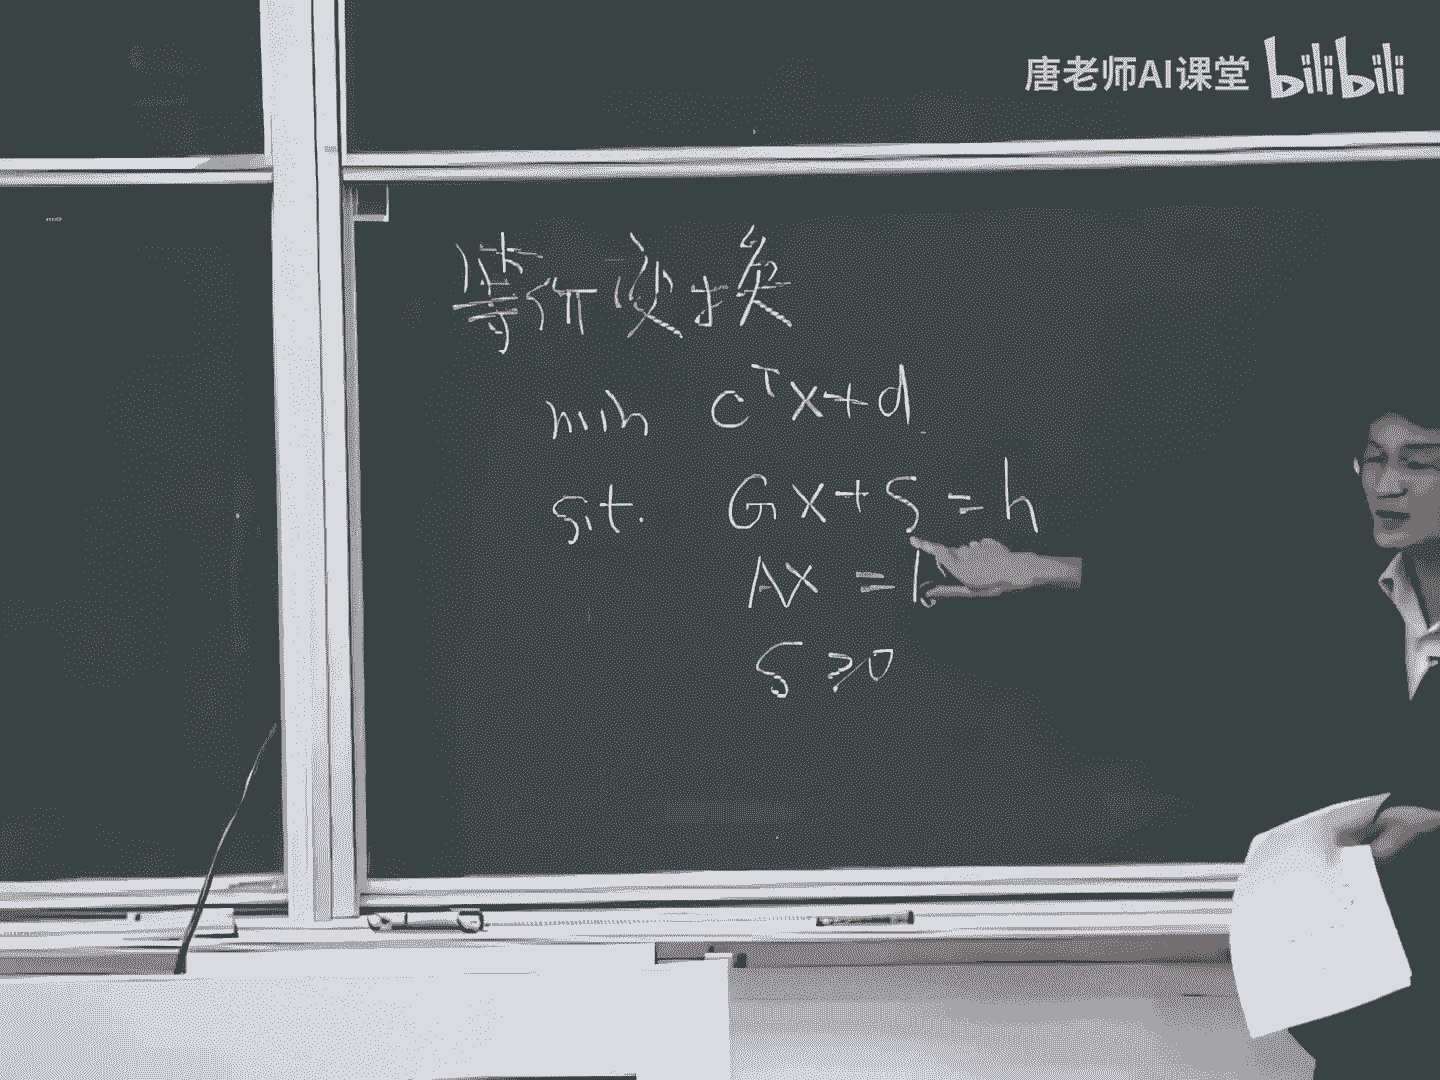 唐老师AI课堂 bilibili
等价变换
min c^T x + d
s.t. Gx + s = h
Ax = b
s ≥ 0